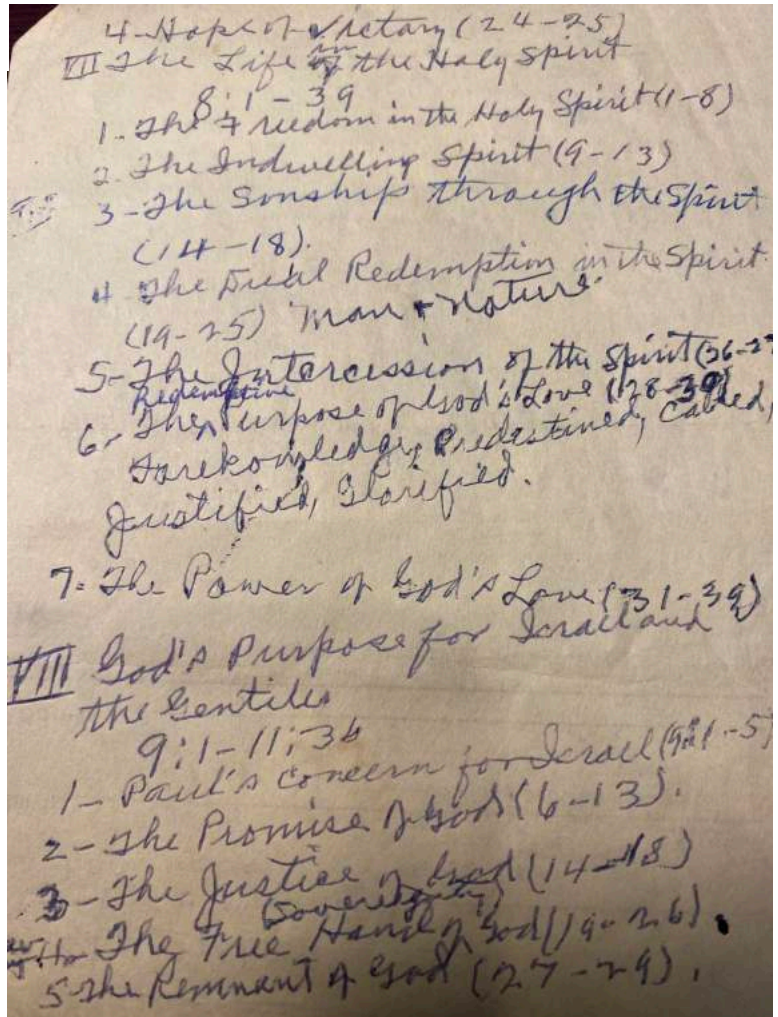 4-Hope of Victory (24-25)
VII The Life in the Holy Spirit
8:1-39
1. The Freedom in the Holy Spirit (1-8)
2. The Indwelling Spirit (9-13)
3-The Sonship through the Spirit
(14-18).
4 The Dual Redemption in the Spirit
(19-25) Man & Nature.
5-The Intercession of the Spirit (26-27
Redemptive
6- The ^ Purpose of God's Love (28-30)
Forekowledge, Predestined, Called,
Justified, Glorified.
7- The Power of God's Love (31-39)
VIII God's Purpose for Israel and
the Gentiles
9:1-11:36
1- Paul's concern for Israel (9:1-5)
2-The Promise of God (6-13).
3-The Justice of God (14-18)
(Sovereignty)
The Free Hand of God (19-26).
5-The Remnant of God (27-29).